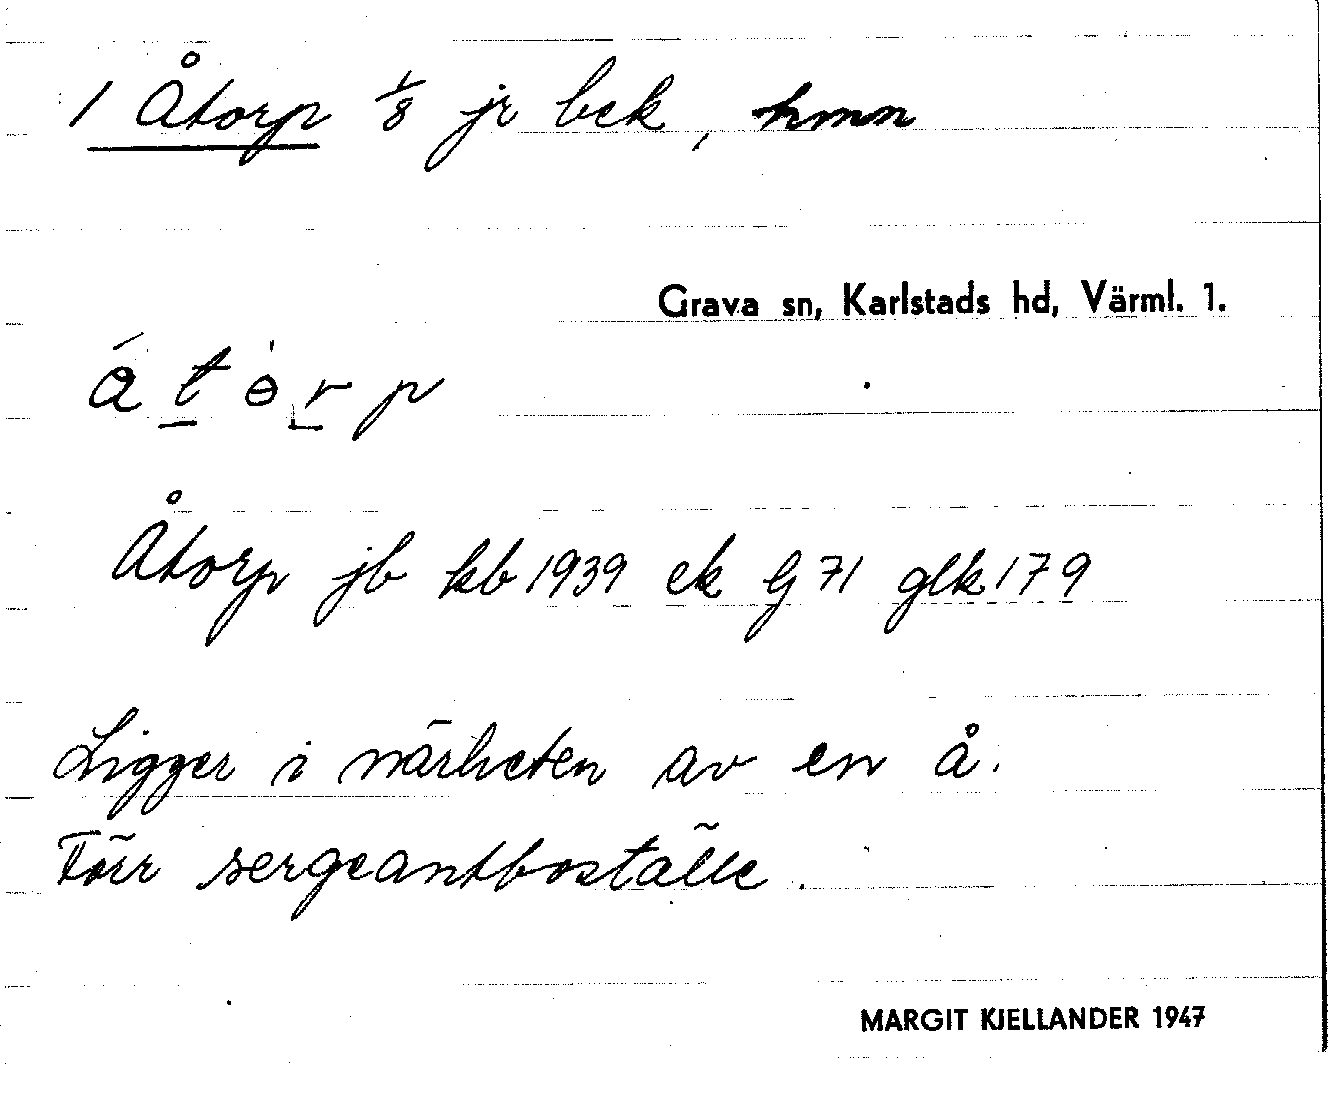 1 Åtorp 1/8 jr bek, hmn
Grava sn, Karlstads hd, Värml. 1.
Åtorp jb kb 1939 ek G 71 glk 179
Ligger i närheten av en å.
Förr sergeantboställe.
MARGIT KJELLANDER 1947